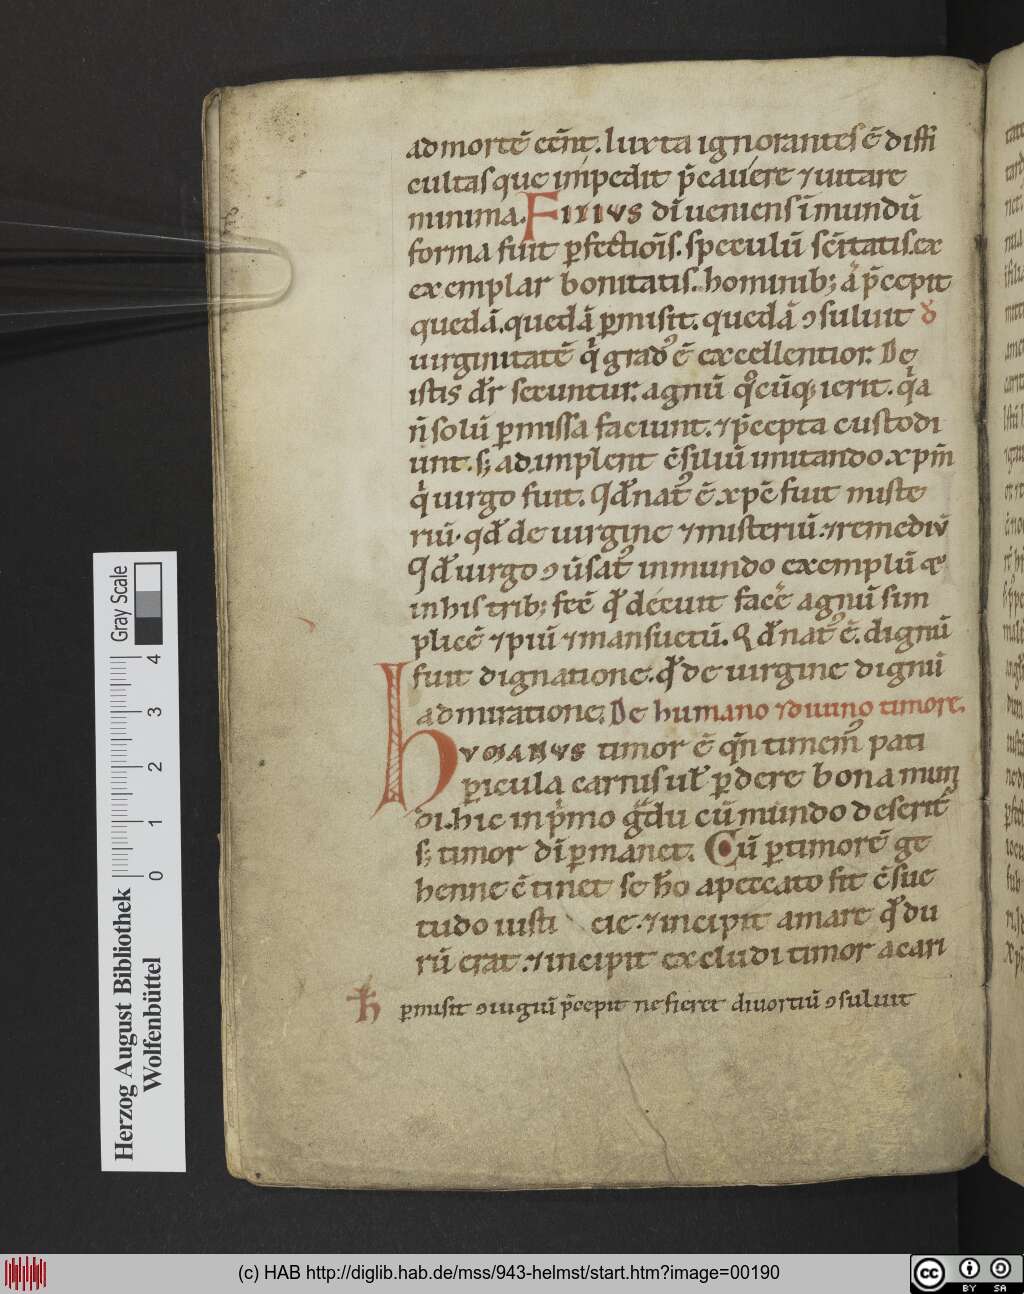 ad mortē ēēn̄t. luxta ignorantes ē diffi
cultas que impedit p̄cauere ⁊ uitare
minima. Filius dī ueniens ī mundū
forma fuit ꝑfectiōis. speculū sc̄itatis. ex
exemplar bonitatis. hominib; a p̄cepit
quedā. quedā ꝑmisit. quedā ꝯsuluit ð
uirginitatē q̇ gradꝰ ē excellentior. De
istis dr̄ secuntur. agnū qͦcūq; ierit. q̇a
n̄ solū ꝑmissa faciunt. ⁊ p̄cepta custodi
unt. s; ad implent c̄siluī imitando. xp̄m̄
q̇ uirgo fuit. Qd̄ natꝰ ē xpē fuit miste
riū. qd̄ de uirgine ⁊ misteriū. ⁊ remediū
Qd̄ uirgo ꝯūsatꝰ in mundo exemplū æ
in his trib; feē qd̄ decuit facē agnū sim
plicē ⁊ piū ⁊ mansuetū. Qd̄ natꝰ ē. dignū
fuit dignatione. qd̄ de uirgine dignū
admiratione; De humano ⁊ diuino timore.
humanus timor ē qn̄ timemꝰ pati
ꝑicula carnis ul̄ ꝑdere bona mun
di. hic in p̍mo gᷓdu cū mundo deserit͛
s; timor dī ꝑmanet. Cū ꝑ timorē ge
henne c̄tinet se h̄o a peccato fit c̄sue
tudo iusti cie. ⁊ incipit amare qd̄ du
rū erat. ⁊ incipit excludi timor a cari
ħ ꝑmisit ꝯiugiū p̄cepit ne fieret diuortiū ꝯsuluit
Herzog August Bibliothek
Wolfenbüttel
0 1 2 3 4
Gray Scale
(c) HAB http://diglib.hab.de/mss/943-helmst/start.htm?image=00190
cc BY SA